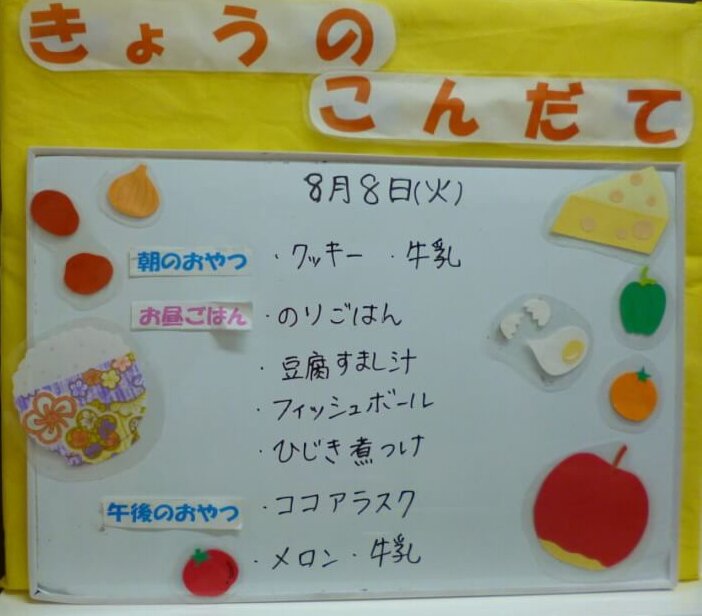 きょうの
こんだて
8月8日(火)
朝のおやつ ・クッキー ・牛乳
お昼ごはん ・のりごはん
・豆腐すまし汁
・フィッシュボール
・ひじき煮つけ
午後のおやつ ・ココアラスク
・メロン・牛乳